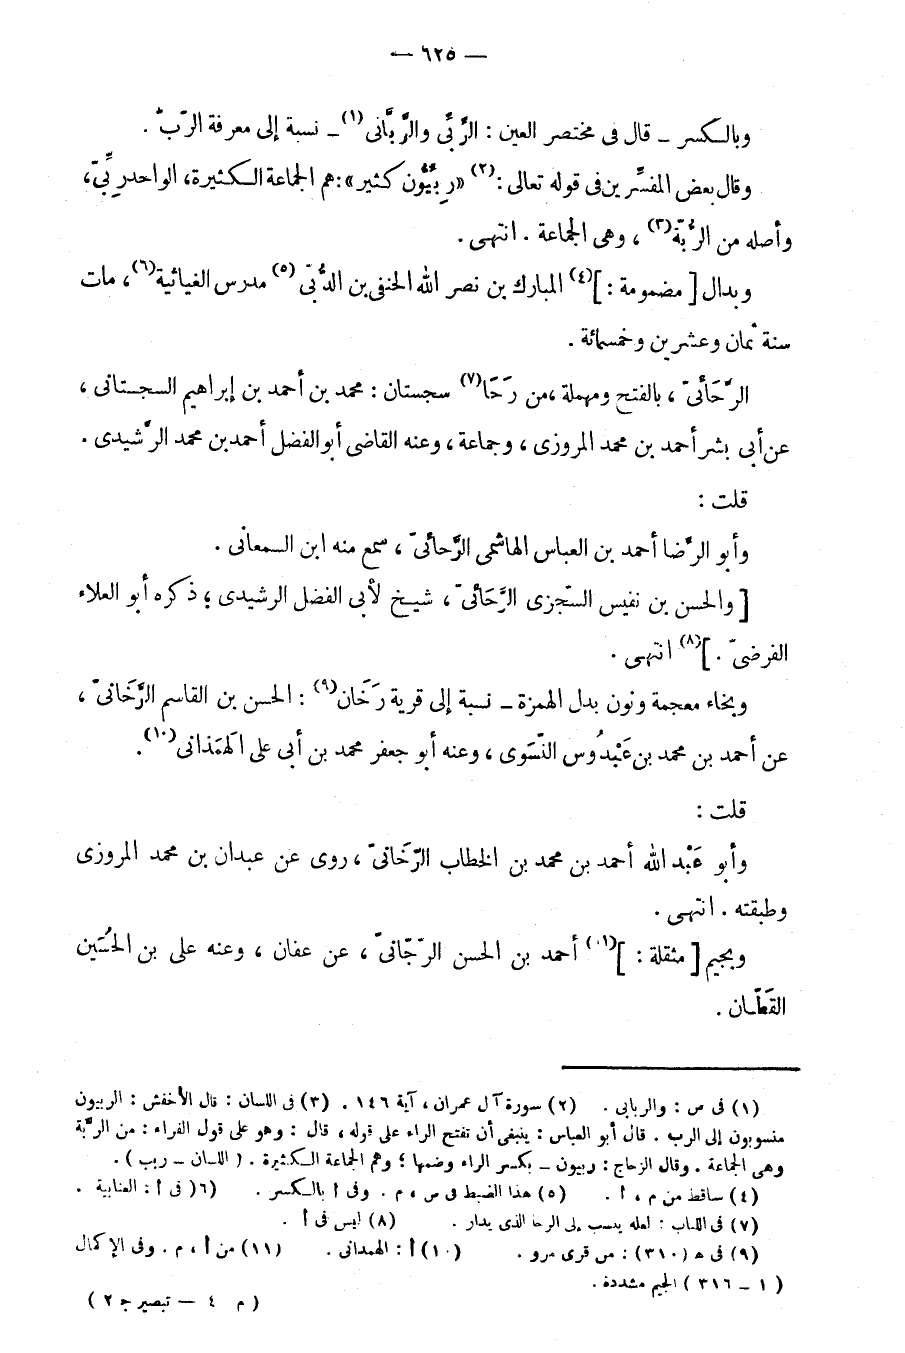 — ٦٢٥ —
وبالكسر – قال فى مختصر العين : الرِّبِّى والرَّبَّانى(١) – نسبة إلى معرفة الرَّبّ .
وقال بعض المفسِّرين فى قوله تعالى :(٢) «رِبِّيُّون كثير»: هم الجماعة الكثيرة، الواحد رِبِّىّ،
وأصله من الرُّبَّة(٣) ، وهى الجماعة . انتهى .
وبدال [ مضمومة : ](٤) المبارك بن نصر الله الحنفى بن الدُّبّى(٥) مدرس الغياثية(٦)، مات
سنة ثمان وعشرين وخمسمائة .
الرَّحَائىّ ، بالفتح ومهملة ،من رَحَا(٧) سجستان : محمد بن أحمد بن إبراهيم السجستانى ،
عن أبى بشر أحمد بن محمد المروزى ، وجماعة ، وعنه القاضى أبو الفضل أحمد بن محمد الرَّشيدى .
قلت :
وأبو الرِّضا أحمد بن العباس الهاشمى الرَّحائىّ ، سمع منه ابن السمعانى .
[ والحسن بن نفيس السّجزى الرَّحَائىّ ، شيخ لأبى الفضل الرشيدى ؛ ذكره أبو العلاء
الفرضىّ . ](٨) انتهى .
وبخاء معجمة ونون بدل الهمزة – نسبة إلى قرية رَخَان(٩) : الحسن بن القاسم الرَّخَانىّ ،
عن أحمد بن محمد بن عَبْدُوس النَّسَوى ، وعنه أبو جعفر محمد بن أبى على الهَمَذانى(١٠).
قلت :
وأبو عَبْد الله أحمد بن محمد بن الخطاب الرَّخَانىّ ، روى عن عبدان بن محمد المروزى
وطبقته . انتهى .
وبجيم [ مثقلة : ](١٠) أحمد بن الحسن الرَّجَّانىّ ، عن عفان ، وعنه على بن الحُسَين
القَطَّان .
(١) فى ص : والربابى . (٢) سورة آل عمران ، آية ١٤٦ . (٣) فى اللسان : قال الأخفش : الربيون
منسوبون إلى الرب . قال أبو العباس : ينبغى أن تفتح الراء على قوله ، قال : وهو على قول الفراء : من الربة
وهى الجماعة . وقال الزجاج : ربيون – بكسر الراء وضمها ؛ وهم الجماعة الكثيرة . ( اللسان – ربب ) .
(٤) ساقط من م ، أ . (٥) هذا الضبط فى ص ، م . وفى أ بالكسر . (٦) فى أ : العنابية .
(٧) فى اللباب : لعله ينسب إلى الرحا الذى يدار . (٨) ليس فى أ .
(٩) فى ه (٣١٠) : من قرى مرو . (١٠) أ : الهمدانى . (١١) من أ ، م . وفى الإكمال
( ١ – ٣١٦ ) الجيم مشددة .
( م ٤ – تبصير ج ٢ )